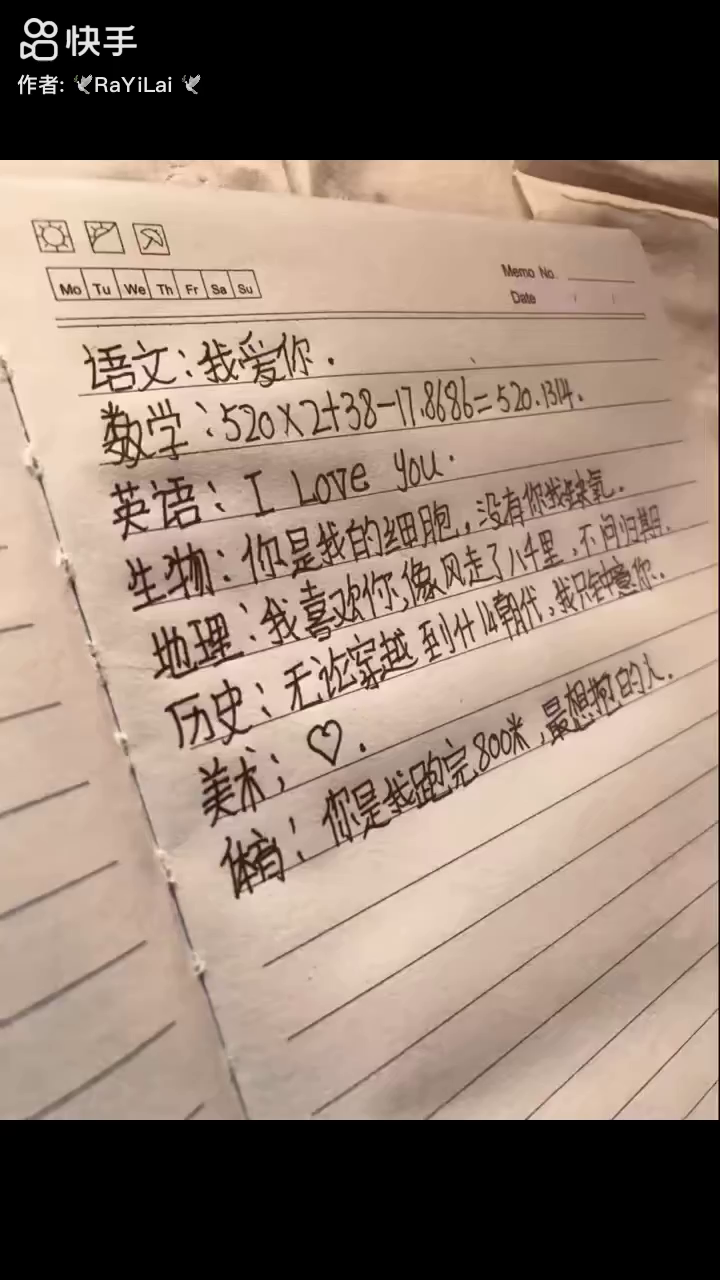 快手
作者: 🕊RaYiLai 🕊
Memo No.
Mo Tu We Th Fr Sa Su
Date
语文：我爱你.
数学：520×2+38-17.8686=520.1314.
英语：I Love you.
生物：你是我的细胞，没有你我会缺氧.
地理：我喜欢你，像风走了八千里，不问归期.
历史：无论穿越到什么朝代，我只钟意你.
美术：♡.
体育：你是我跑完800米，最想抱的人.